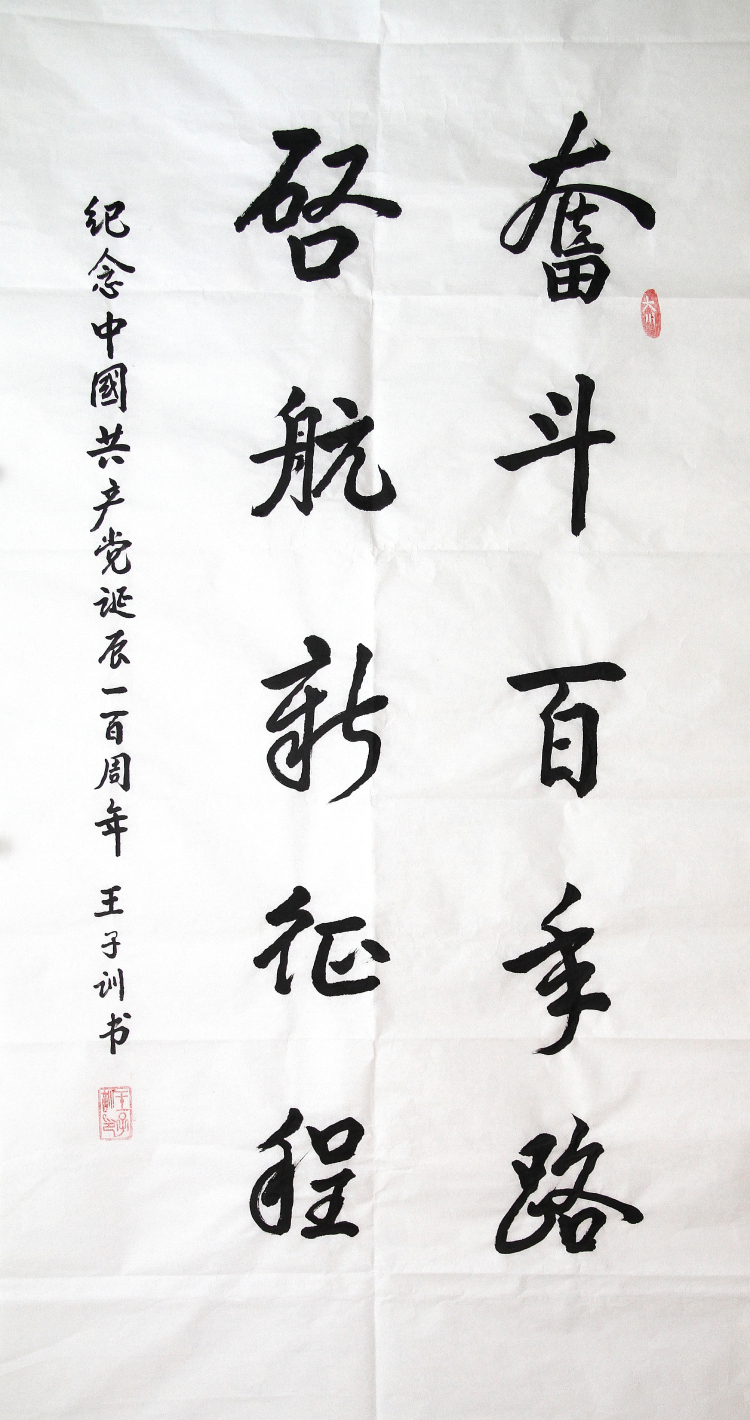 奮斗百年路
启航新征程
纪念中國共产党诞辰一百周年 王子训书